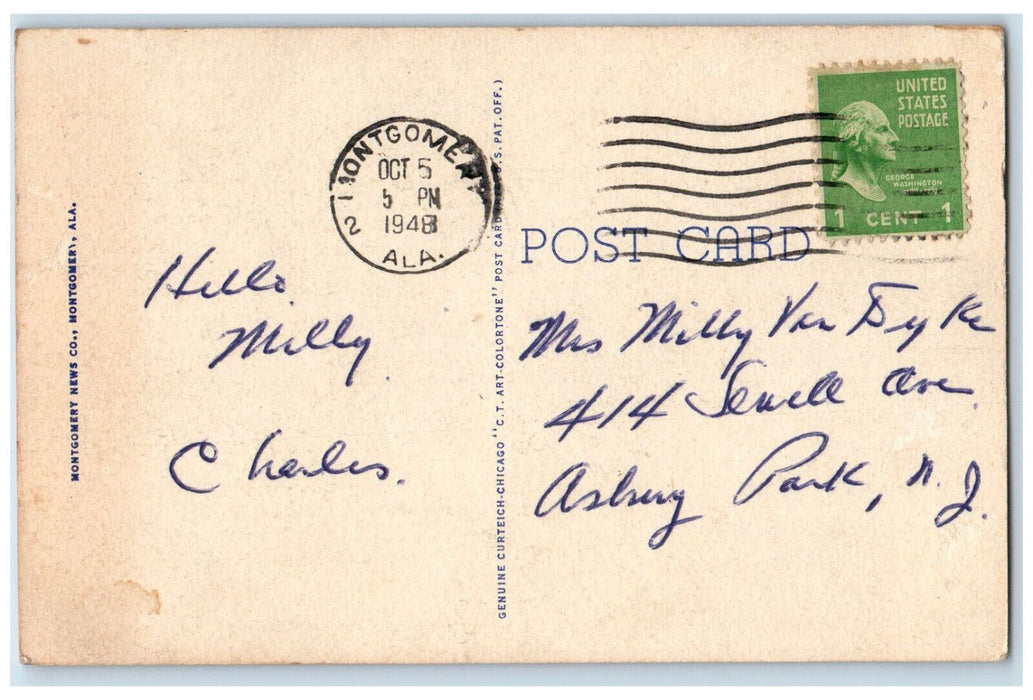 MONTGOMERY NEWS CO., MONTGOMERY, ALA.
Hello
Milly.
Charles.
MONTGOMERY
2 1
OCT 5
5 PM
1948
ALA.
GENUINE CURTEICH-CHICAGO "C.T. ART-COLORTONE" POST CARD S. PAT. OFF.)
POST CARD
UNITED
STATES
POSTAGE
GEORGE
WASHINGTON
1 CENT 1
Mrs Milly Van Dyke
414 Sewall Ave.
Asbury Park, N. J.